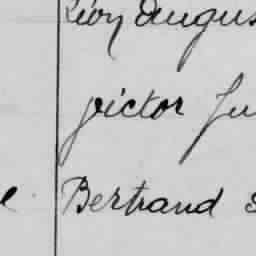 Léon Augus
Victor Ju
e Bertrand